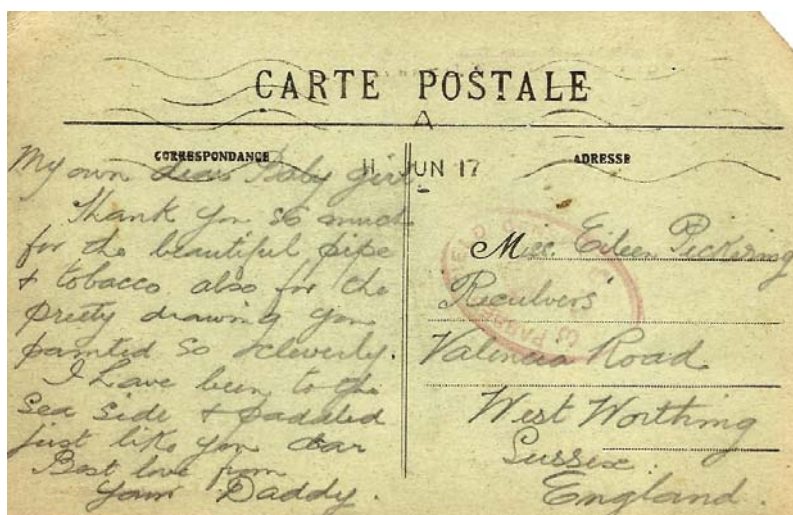 CARTE POSTALE
A
CORRESPONDANCE
11 JUN 17
ADRESSE
My own dear Baby girl
Thank you so much
for the beautiful pipe
& tobacco also for the
pretty drawing you
painted so cleverly.
I have been to the
Sea Side & paddled
just like you dear
Best love from
Your Daddy.
Miss. Eileen Pickering
Reculvers'
Valencia Road
West Worthing
Sussex.
England.